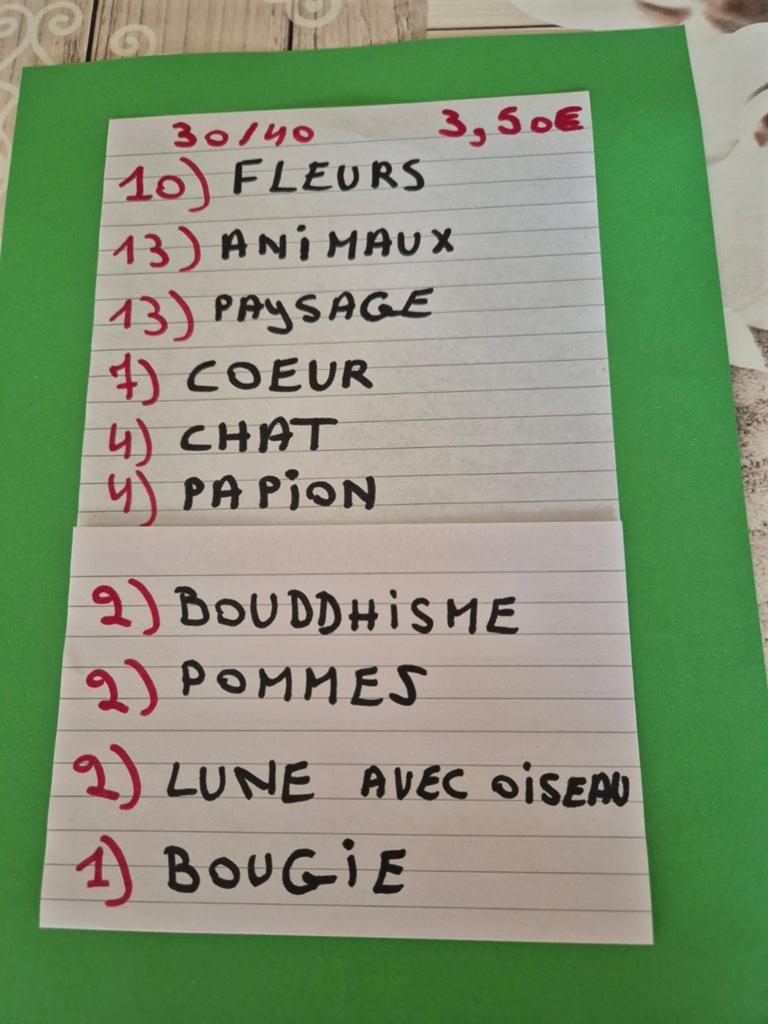 30/40 3,50€
10) FLEURS
13) ANiMAUX
13) PAYSAGE
7) COEUR
4) CHAT
4) PAPiON
2) BOUDDHiSME
2) POMMES
2) LUNE AVEC OiSEAU
1) BOUGiE